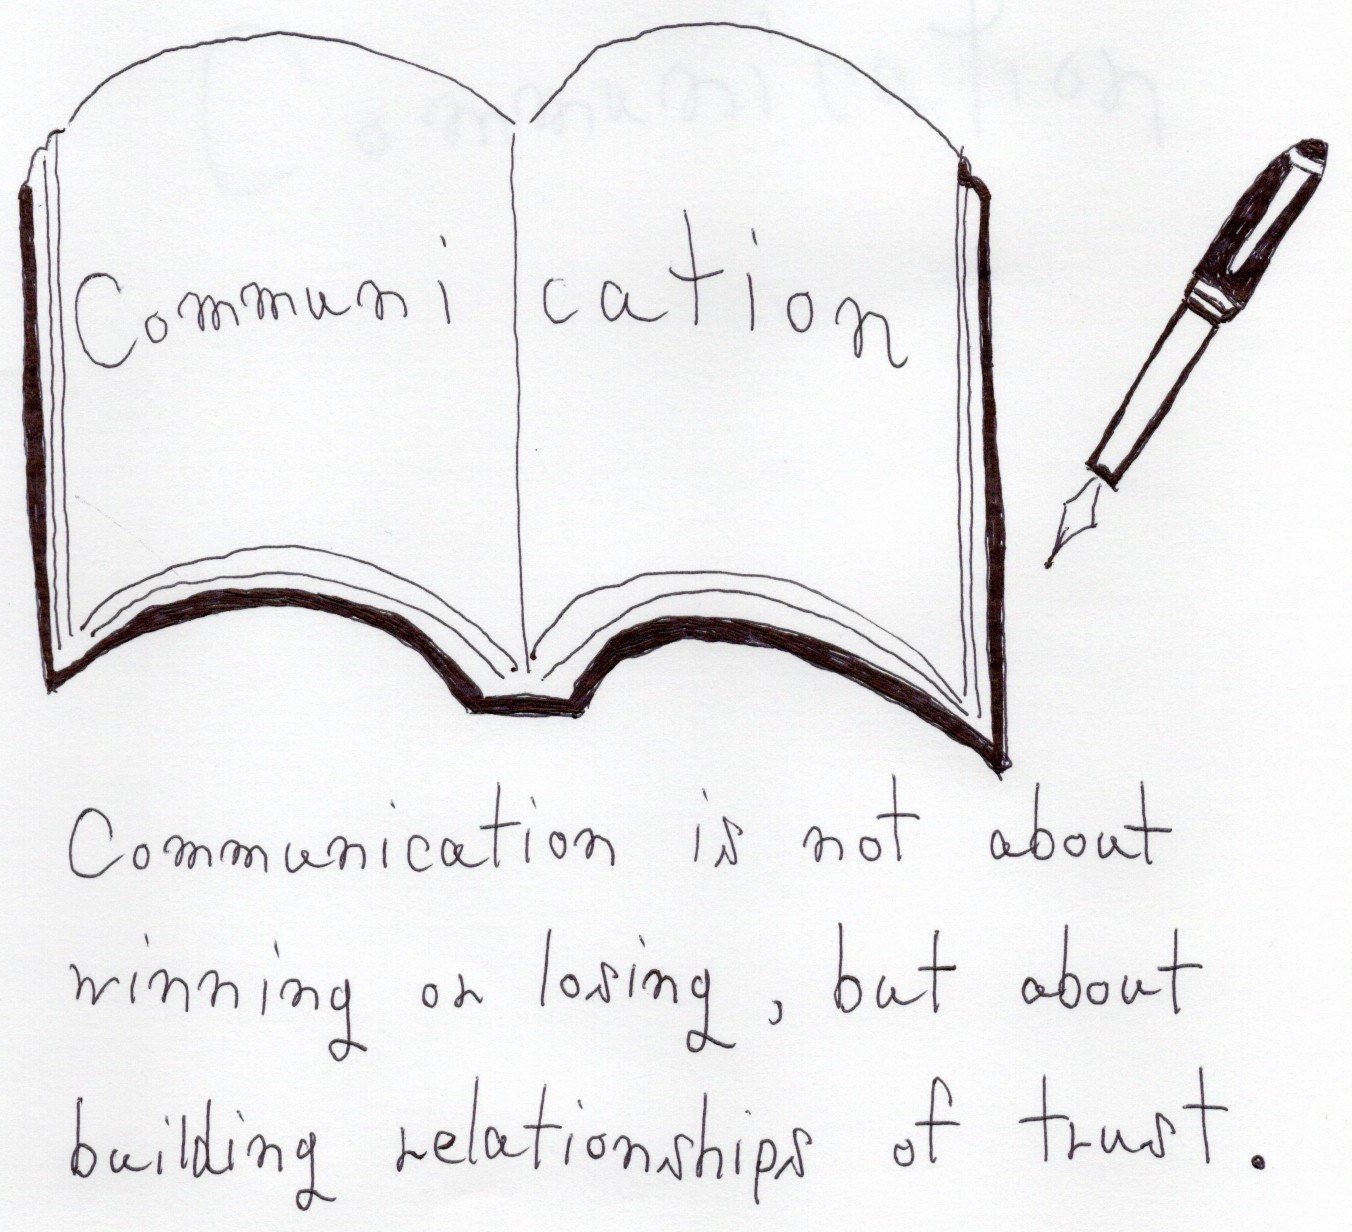 Communication
Communication is not about
winning or losing, but about
building relationships of trust.